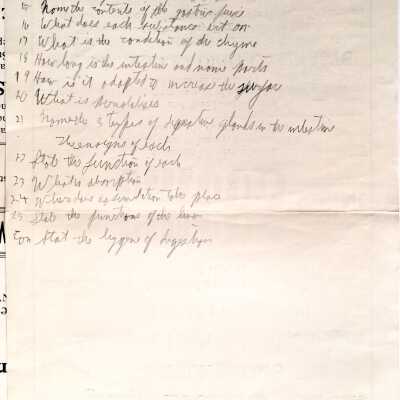 15 Name the contents of the gastric juice
16 What does each substance act on
17 What is the condition of the chyme
18 How long is the intestine and name parts
19 How is it adapted to increase the surface
20 What is
21 Name the 3 types of digestive glands in the intestine
The enzymes of each
22 State the function of each
23 What is absorption
24 Where does assimilation take place
25 State the functions of the liver
State the hygiene of digestion